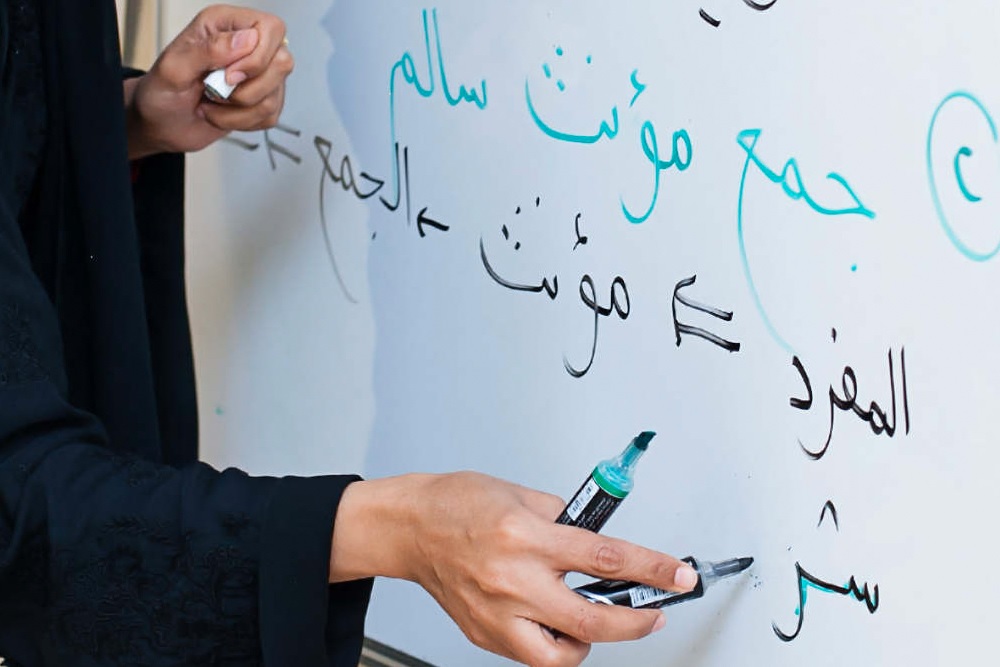 جمع مؤنث سالم
المفرد ⇐ مؤنث ← الجمع